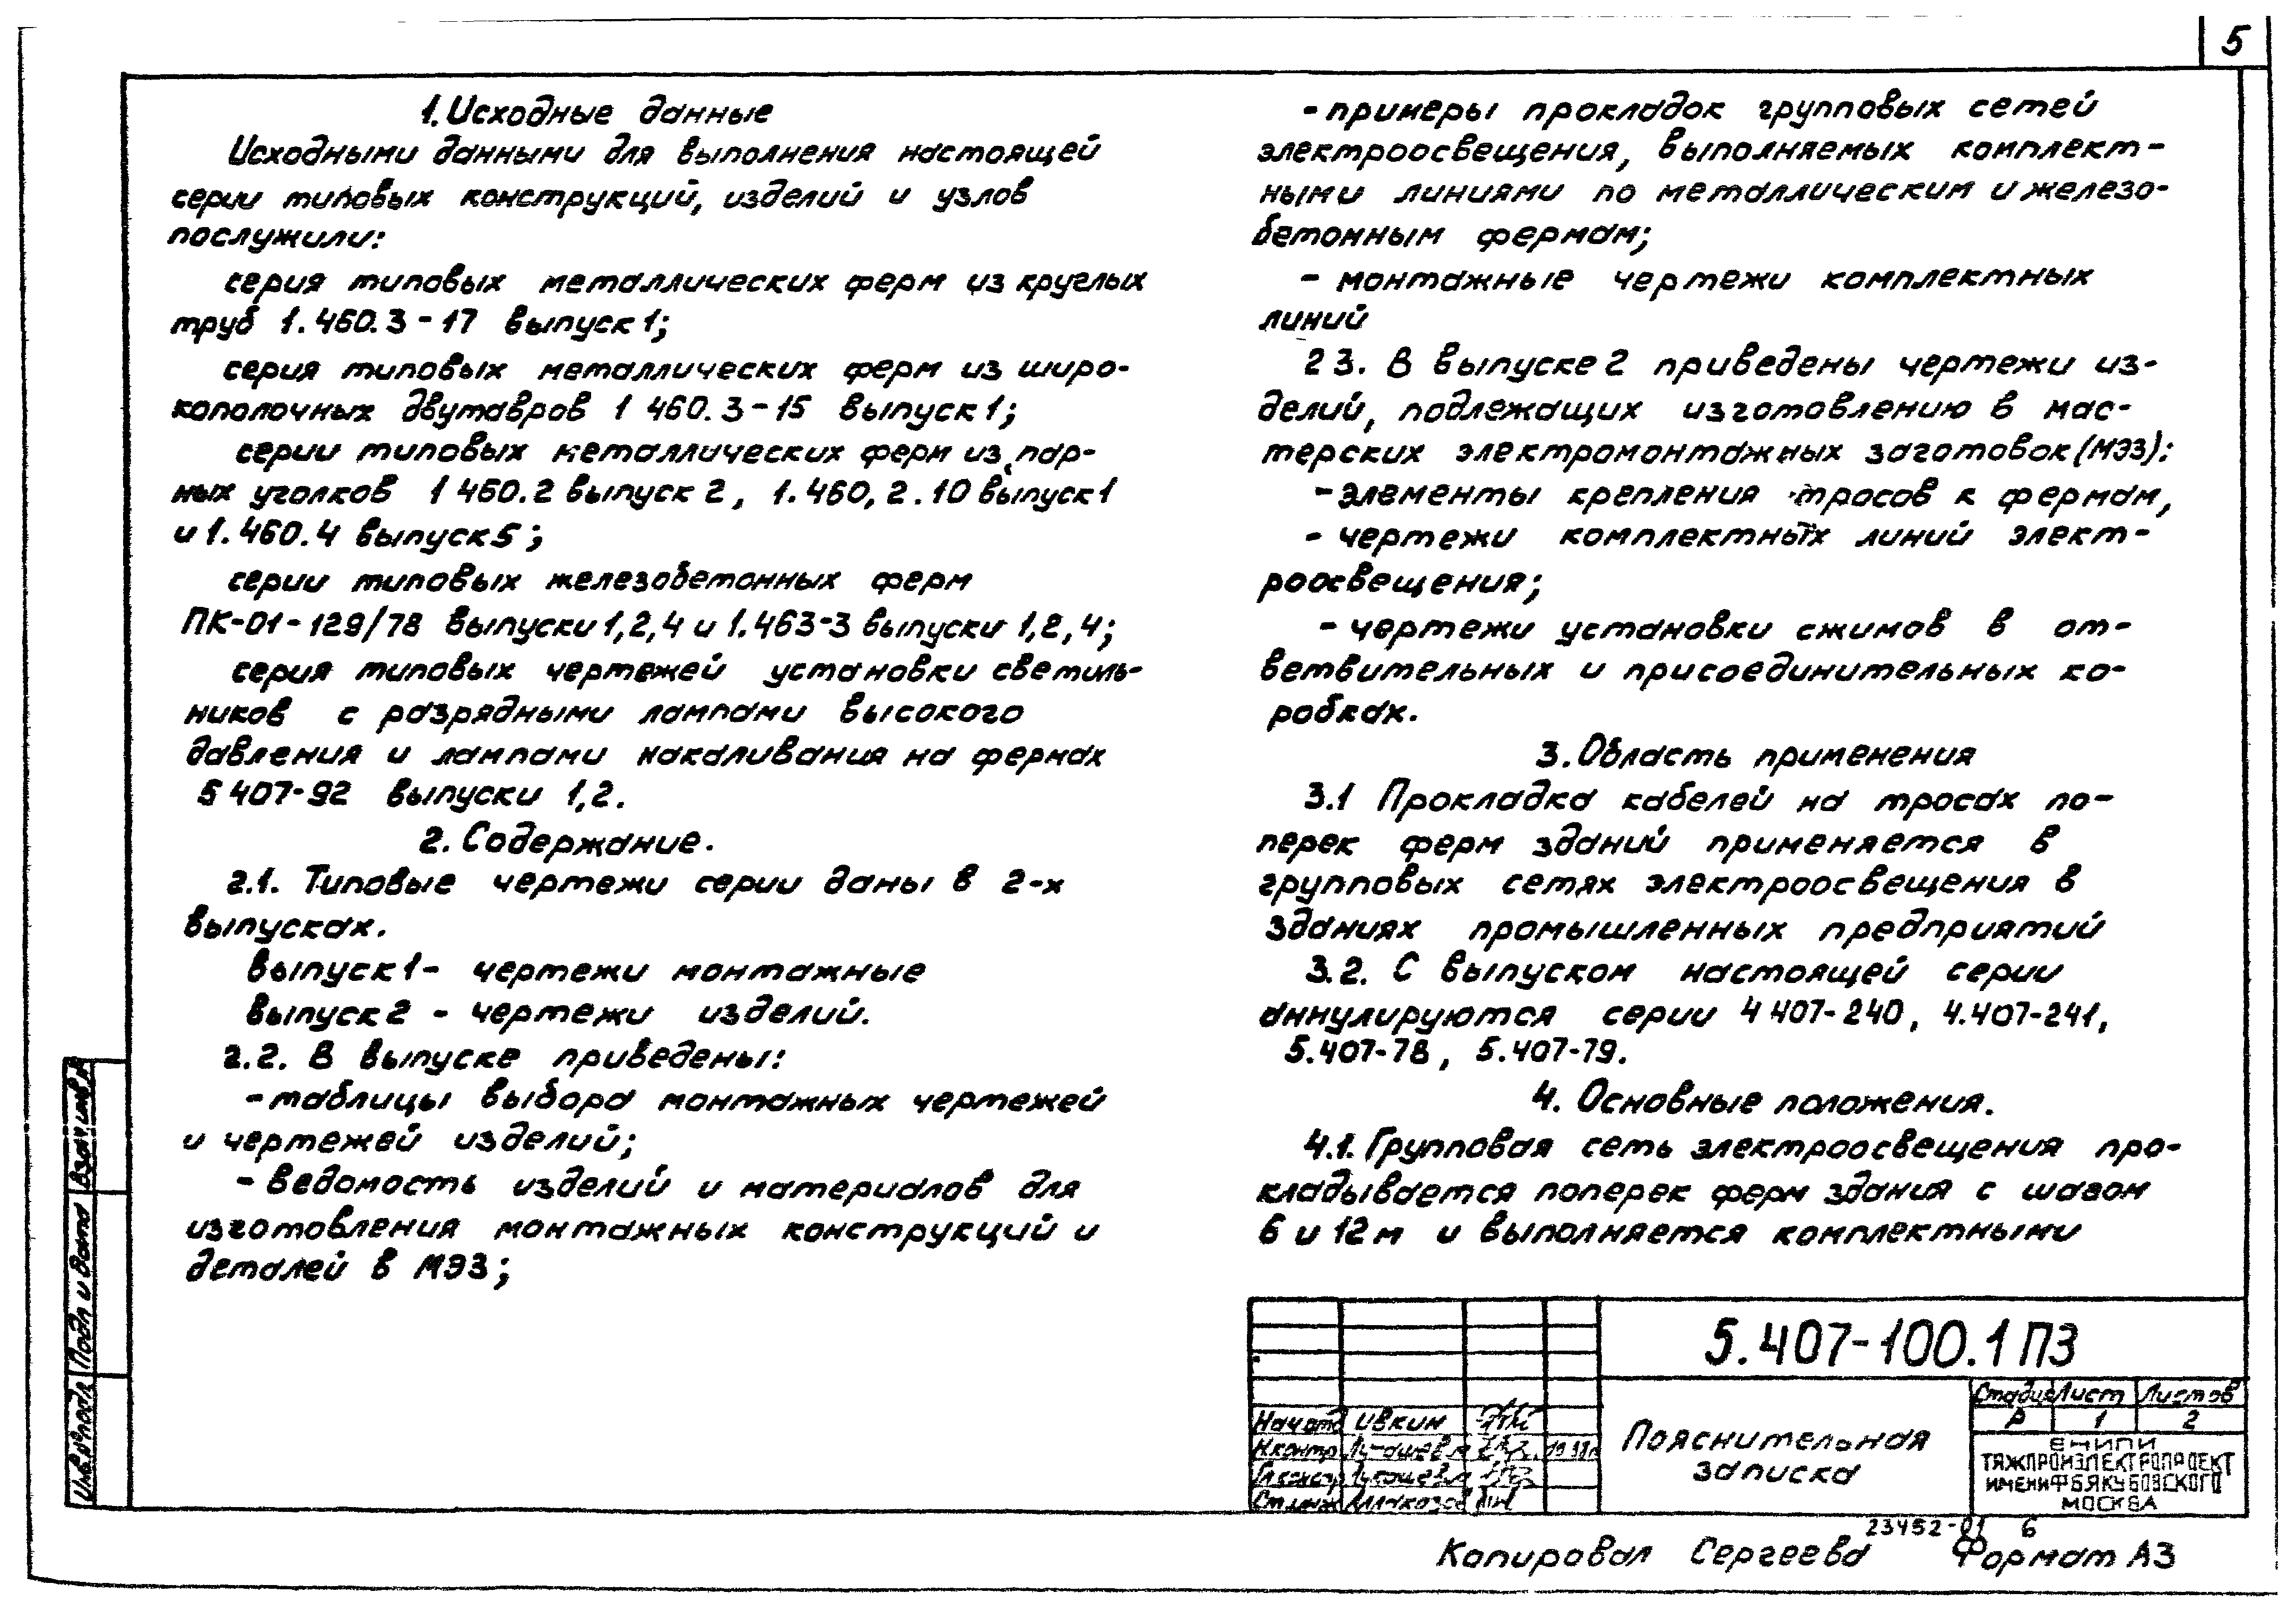 5
1. Исходные данные
Исходными данными для выполнения настоящей
серии типовых конструкций, изделий и узлов
послужили:
серия типовых металлических ферм из круглых
труб 1.460.3-17 выпуск 1;
серия типовых металлических ферм из широ-
кополочных двутавров 1 460.3-15 выпуск 1;
серии типовых металлических ферм из пар-
ных уголков 1 460.2 выпуск 2, 1.460,2.10 выпуск 1
и 1.460.4 выпуск 5;
серии типовых железобетонных ферм
ПК-01-129/78 выпуски 1,2,4 и 1.463-3 выпуски 1,2,4;
серия типовых чертежей установки светиль-
ников с разрядными лампами высокого
давления и лампами накаливания на фермах
5 407-92 выпуски 1,2.
2. Содержание.
2.1. Типовые чертежи серии даны в 2-х
выпусках.
выпуск 1 - чертежи монтажные
выпуск 2 - чертежи изделий.
2.2. В выпуске приведены:
- таблицы выбора монтажных чертежей
и чертежей изделий;
- ведомость изделий и материалов для
изготовления монтажных конструкций и
деталей в МЭЗ;
- примеры прокладок групповых сетей
электроосвещения, выполняемых комплект-
ными линиями по металлическим и железо-
бетонным фермам;
- монтажные чертежи комплектных
линий
2 3. В выпуске 2 приведены чертежи из-
делий, подлежащих изготовлению в мас-
терских электромонтажных заготовок (МЭЗ):
- элементы крепления тросов к фермам,
- чертежи комплектных линий элект-
роосвещения;
- чертежи установки сжимов в от-
ветвительных и присоединительных ко-
робках.
3. Область применения
3.1 Прокладка кабелей на тросах по-
перек ферм зданий применяется в
групповых сетях электроосвещения в
зданиях промышленных предприятий
3.2. С выпуском настоящей серии
аннулируются серии 4 407-240, 4.407-241,
5.407-78, 5.407-79.
4. Основные положения.
4.1. Групповая сеть электроосвещения про-
кладывается поперек ферм здания с шагом
6 и 12 м и выполняется комплектными
Взам. инв. №
Подп и дата
Инв. № подл
5.407-100.1 ПЗ
Пояснительная
записка
Стадия Лист Листов
Р 1 2
Нач отд Ивкин
Н.контр
Гл констр Лукашева
Ст инж
ВНИПИ
ТЯЖПРОМЭЛЕКТРОПРОЕКТ
ИМЕНИ Ф Б ЯКУБОВСКОГО
МОСКВА
23452-01 6
Копировал Сергеева Формат А3